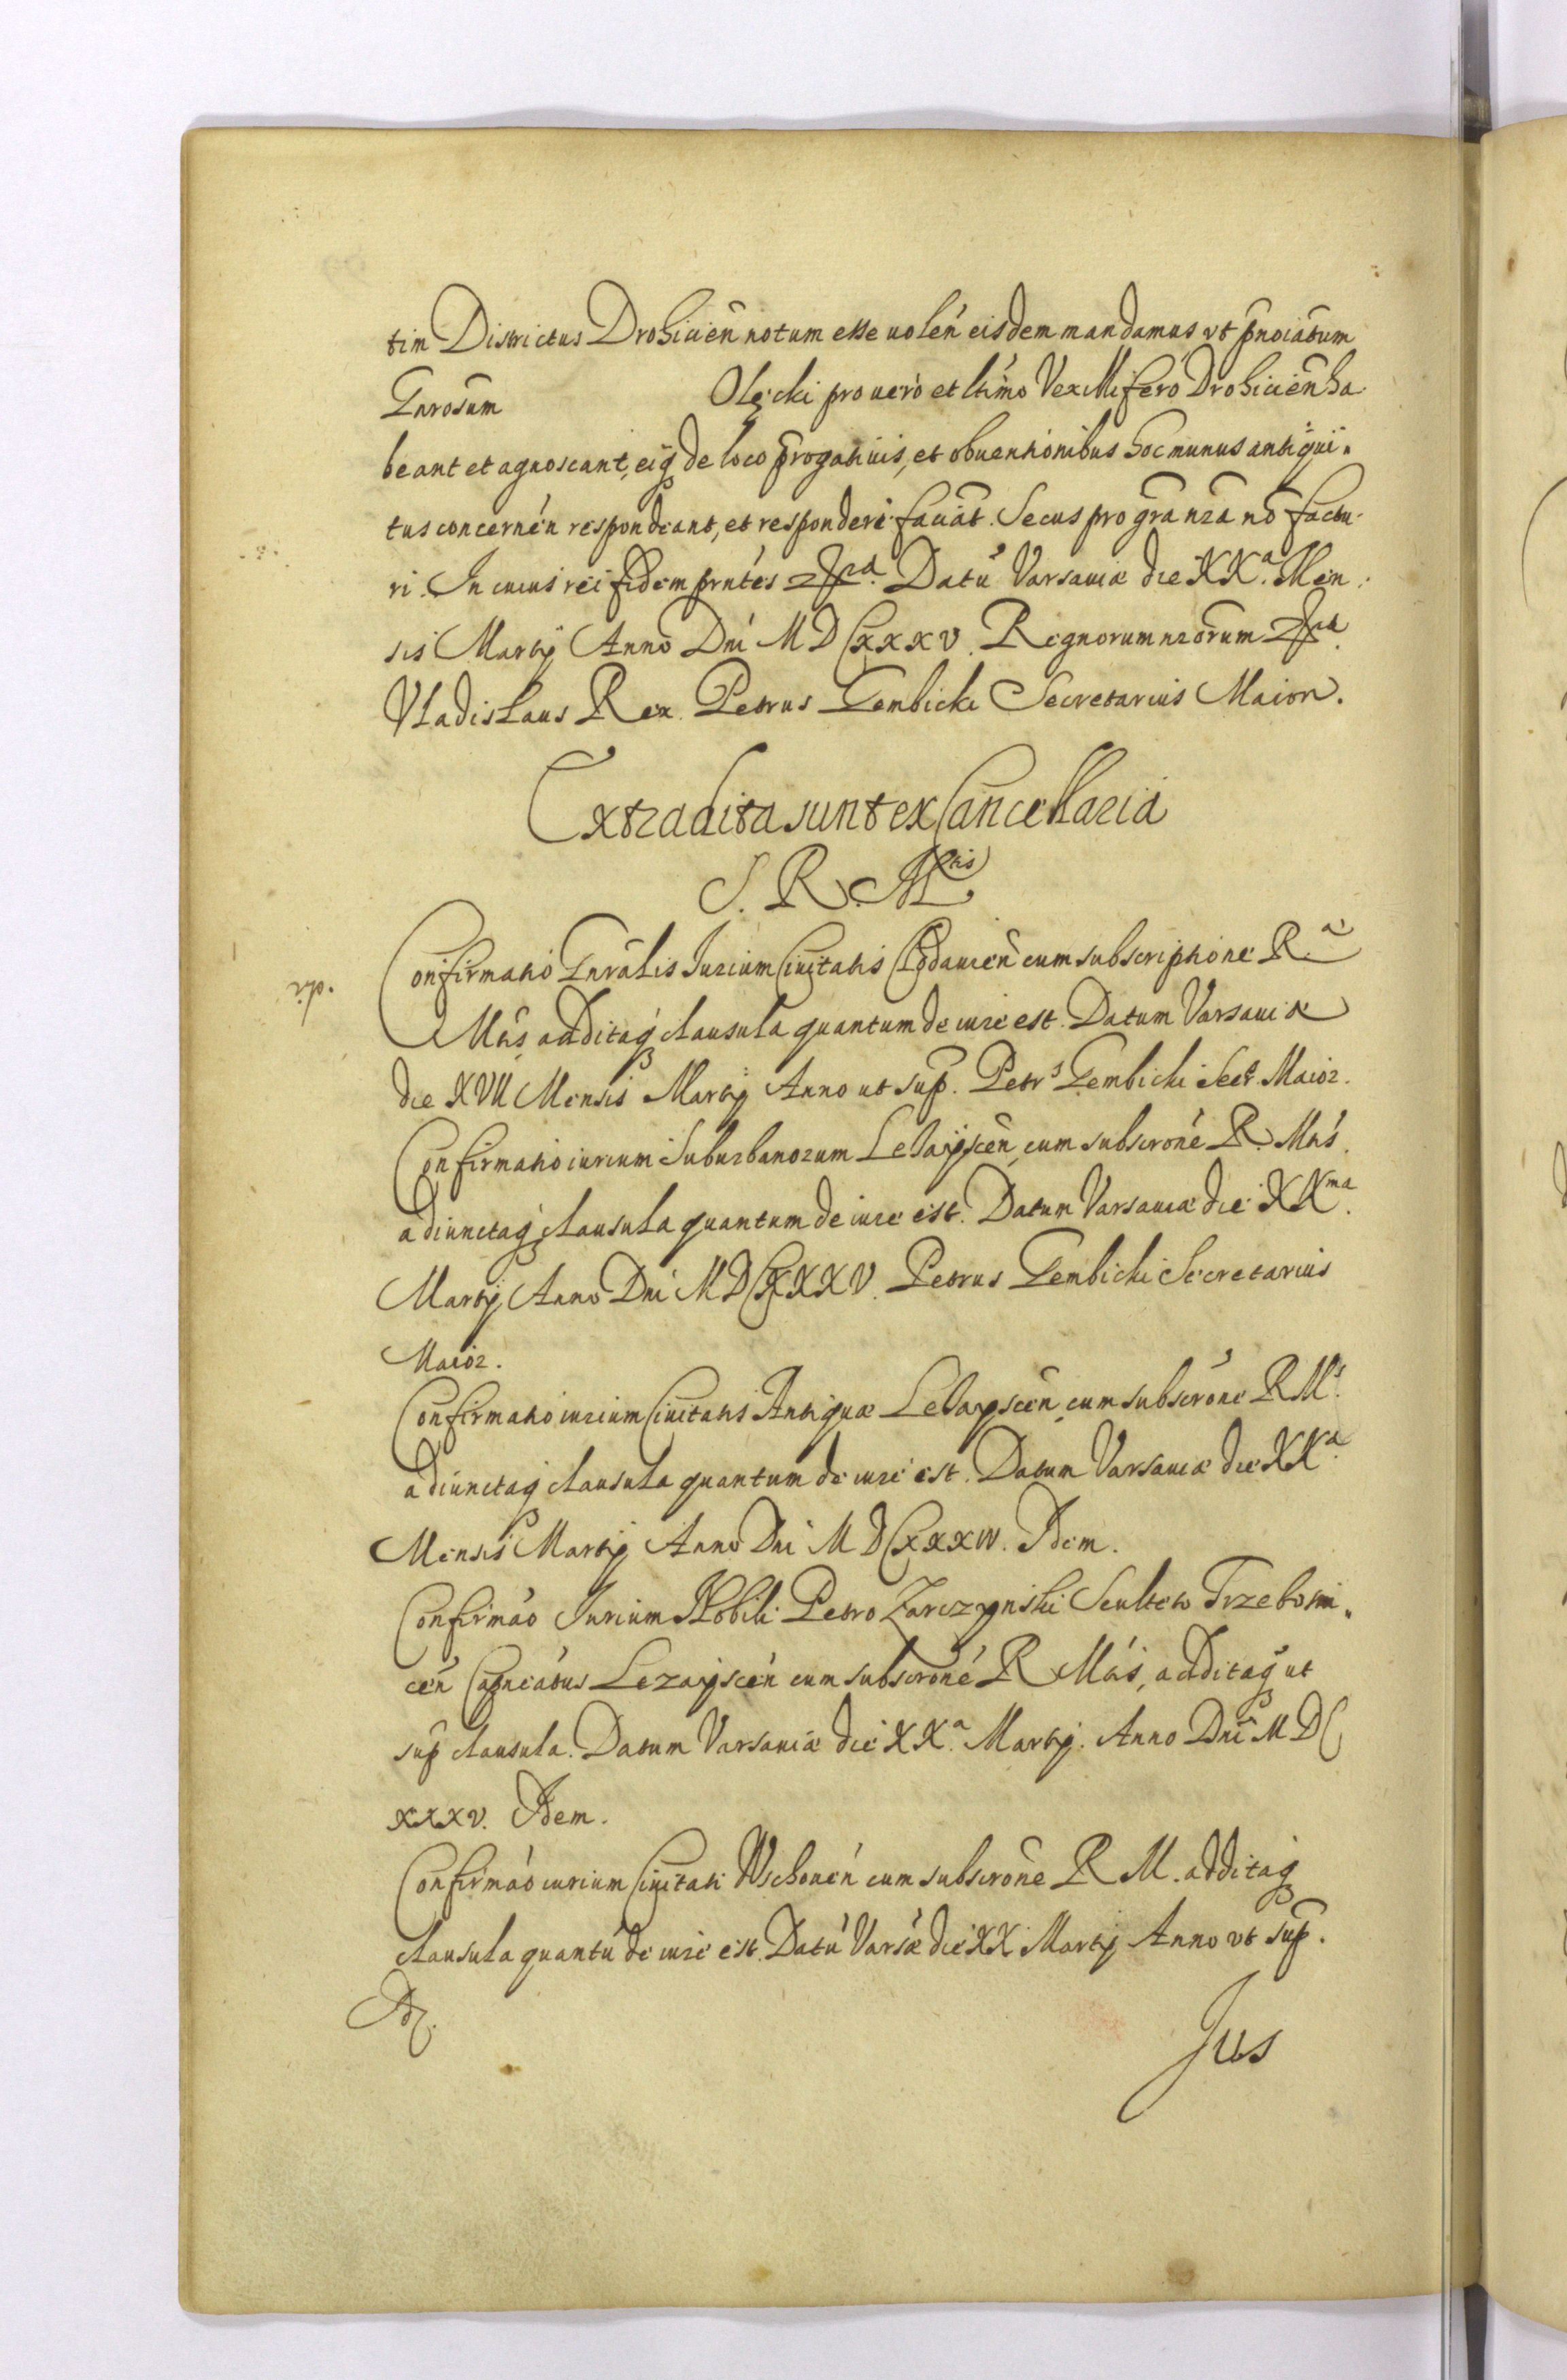 tim Districtus Drohicien̄ notum esse uolen̄ eisdem mandamus vt p̄noiatum
Gnrosum Olęcki pro uero et ltimo Vexillifero Drohicien̄ ha
beant et agnoscant, eiq̃ de loco p̄rogatiuis, et obuentionibus hoc munus antiqui-
tus concernen̄ respondeant, et responderi faciāt. Secus pro grā nrā nō factu-
ri. In cuius rei fidem prntes Datū Varsauiæ die XXª. Men
sis Martij Anno Dni MDCXXXV. Regnorum nrorum
Vladislaus Rex. Petrus Gembicki Secretarius Maior.
Extradita sunt ex Cancellaria
S. R. Mtis
Confirmatio Gnralis Iurium Ciuitatis Clodauien̄ cum subscriptione R.æ
Mtis, additaq̃ clausula quantum de iure est. Datum Varsauiæ
die XVII Mensis Martij Anno ut sup. Petrs Gembicki Secr. Maior.
Confirmatio iurium Suburbanorum Lezayscen̄, cum subscrone R. Mtis.
adiunctaq̃ clausula quantum de iure est. Datum Varsauiæ die XXma.
Martij Anno Dni MDCXXXV. Petrus Gembicki Secretarius
Maior.
Confirmatio iurium Ciuitatis Antiquæ Lezayscen̄, cum subscrone R Ms.
adiunctaq̃ clausula quantum de iure est. Datum Varsauiæ die XXª.
Mensis Martij Anno Dni MDCXXXIV. Idem.
Confirmāo Iurium Nobili Petro Zarczynski Sculteto Trzebosni-
cen̄ Capneatus Lezayscen̄ cum subscrone R Mtis, additaq̃ ut
sup clausula. Datum Varsauiæ die XXª. Martij. Anno Dni MDC
XXXV. Idem.
Confirmāo iurium Ciuitati Wschouen̄ cum subscrone R M. additaq̃
clausula quantū de iure est. Datū Varsæ die XX Martij Anno vt sup.
Id.
Jus